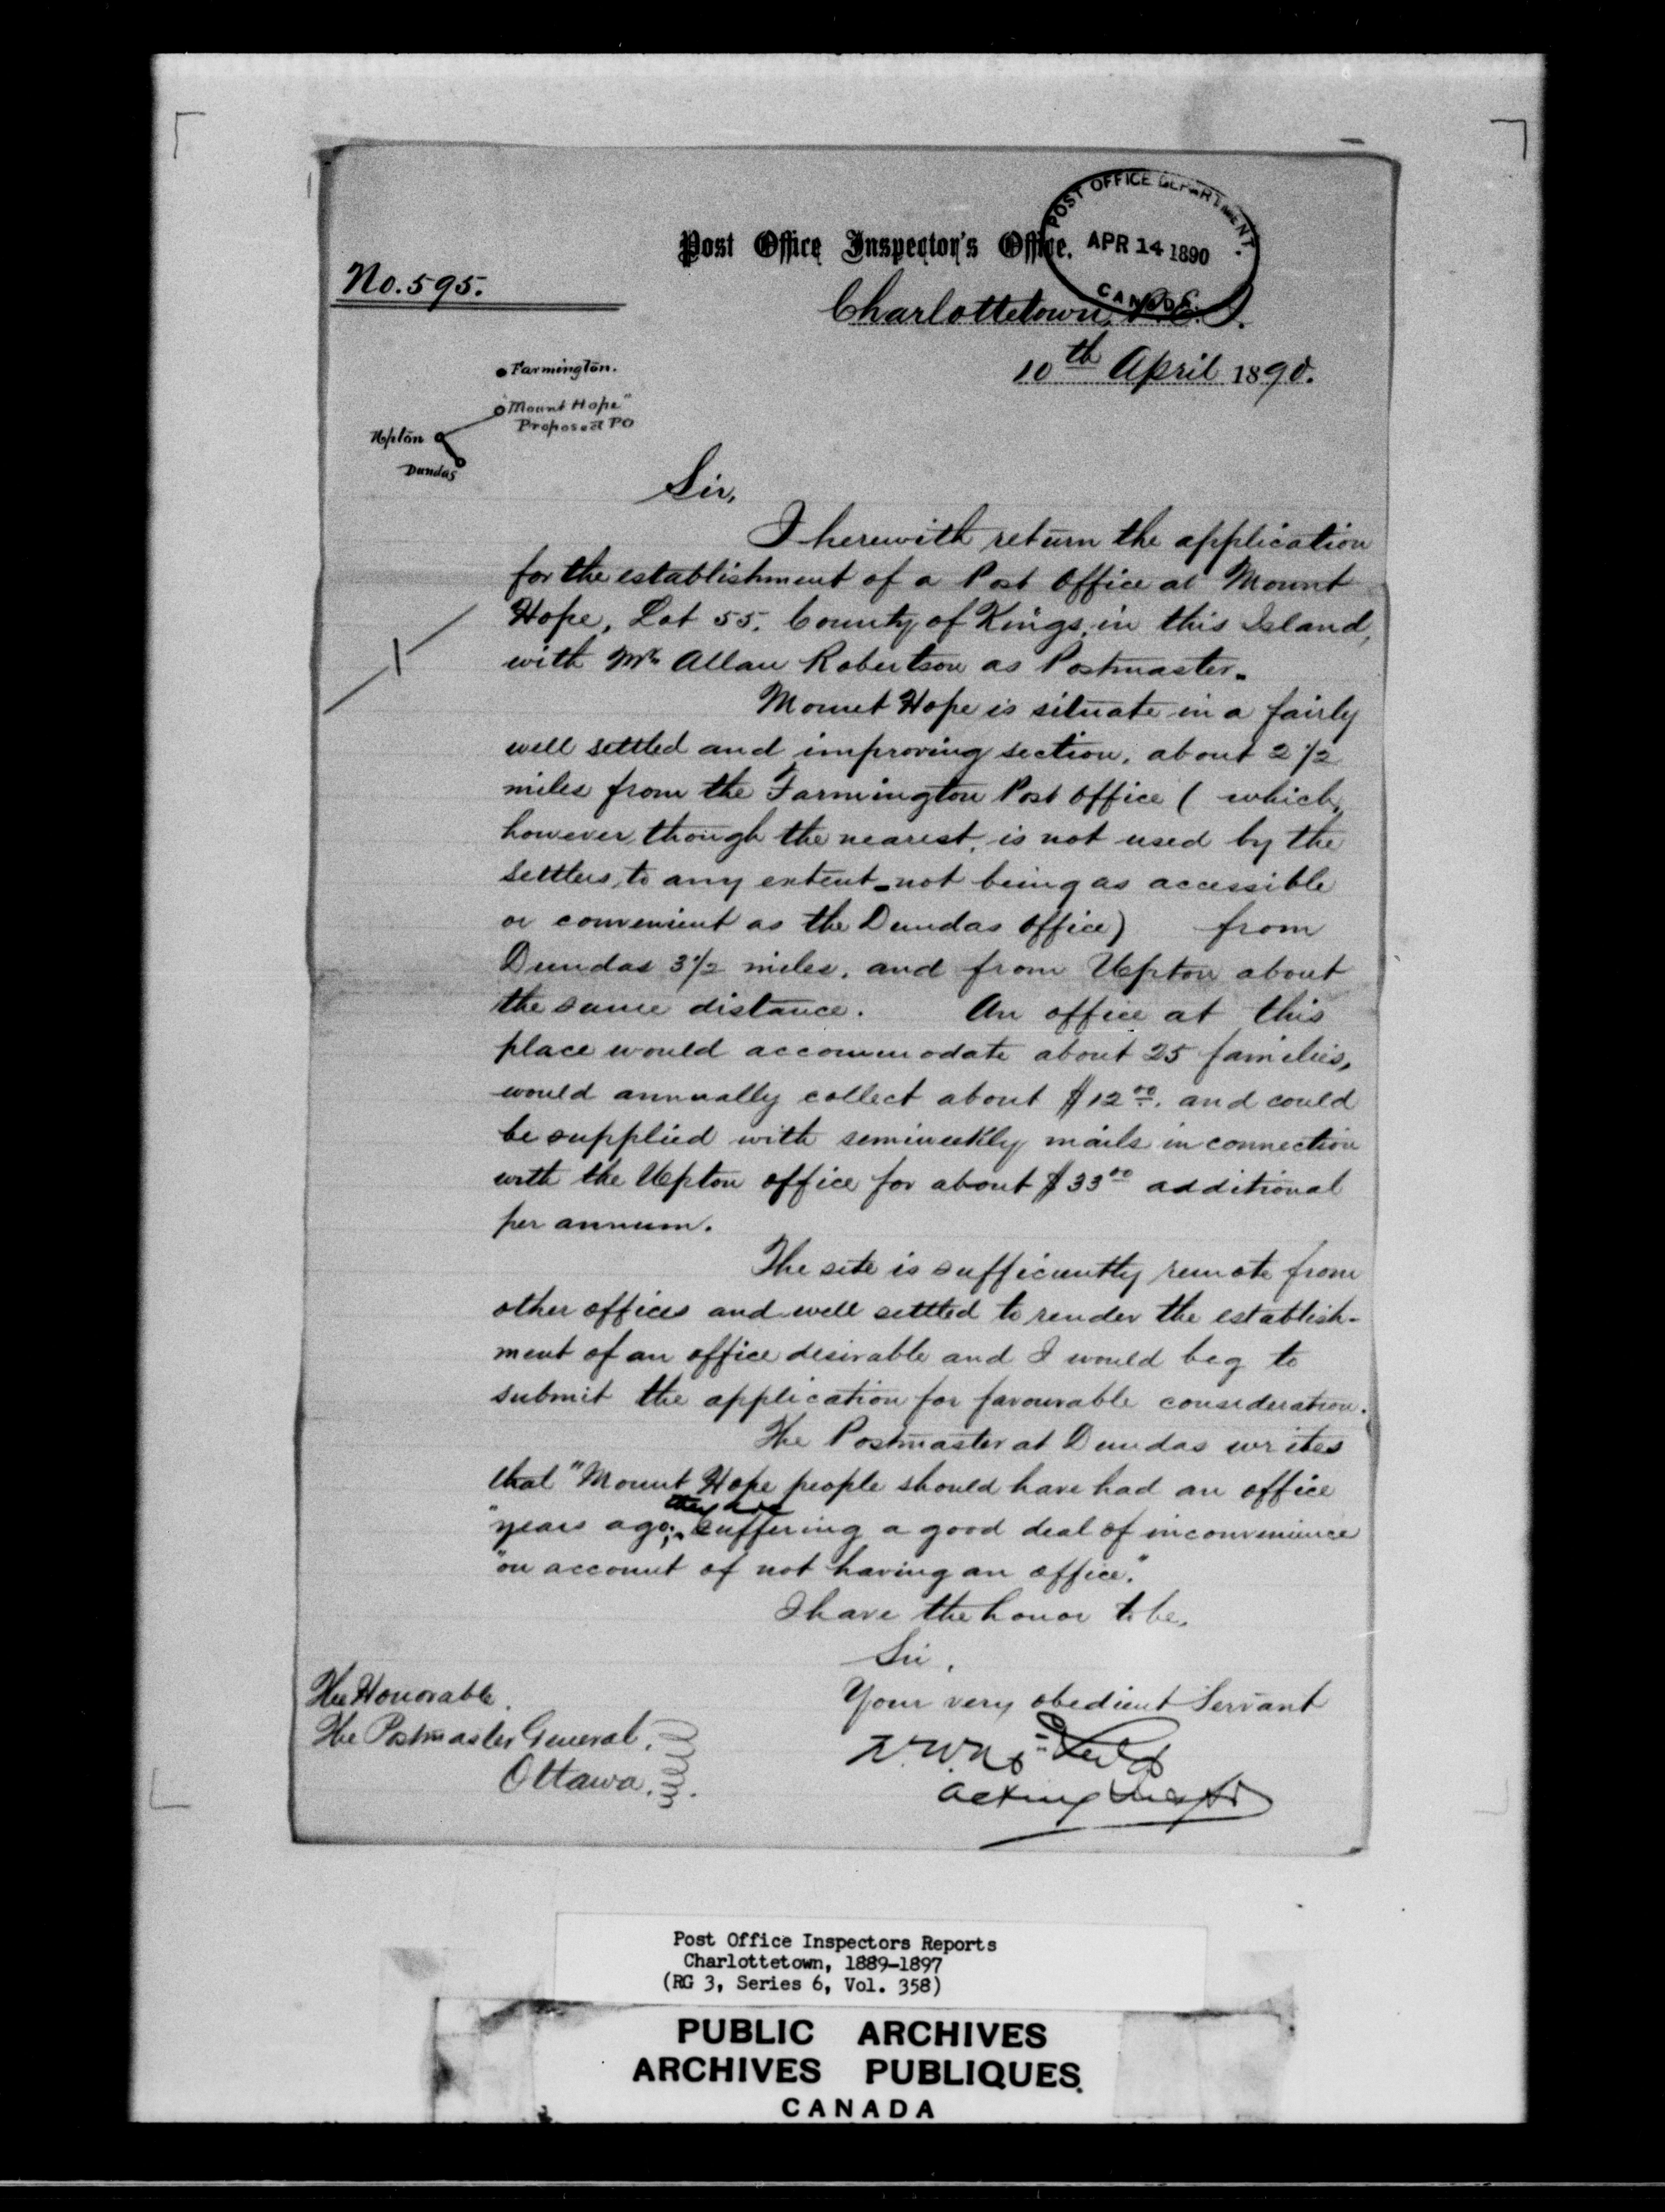 POST OFFICE DEPARTMENT.
APR 14 1890
CANADA.
Post Office Inspector's Office.
No. 595.
Charlottetown, P.E.I.
10th April 1890.
Farmington.
"Mount Hope"
Proposed PO
Upton
Dundas
Sir,
I herewith return the application
for the establishment of a Post Office at Mount
Hope, Lot 55. County of Kings, in this Island,
with Mr. Allan Robertson as Postmaster.
Mount Hope is situate in a fairly
well settled and improving section, about 2 1/2
miles from the Farmington Post Office ( which,
however, though the nearest, is not used by the
settlers, to any extent - not being as accessible
or convenient as the Dundas Office) from
Dundas 3 1/2 miles, and from Upton about
the same distance. An office at this
place would accommodate about 25 families,
would annually collect about $12.00. and could
be supplied with semiweekly mails in connection
with the Upton office for about $33.00 additional
per annum.
The site is sufficiently remote from
other offices and well settled to render the establish-
ment of an office desirable and I would beg to
submit the application for favourable consideration.
The Postmaster at Dundas writes
that "Mount Hope people should have had an office
they are
"years ago; suffering a good deal of inconvenience
"on account of not having an office."
I have the honor to be,
Sir,
Your very obedient Servant
The Honorable
The Postmaster General,
Ottawa.
Acting Inspr
Post Office Inspectors Reports
Charlottetown, 1889-1897
(RG 3, Series 6, Vol. 358)
PUBLIC ARCHIVES
ARCHIVES PUBLIQUES
CANADA